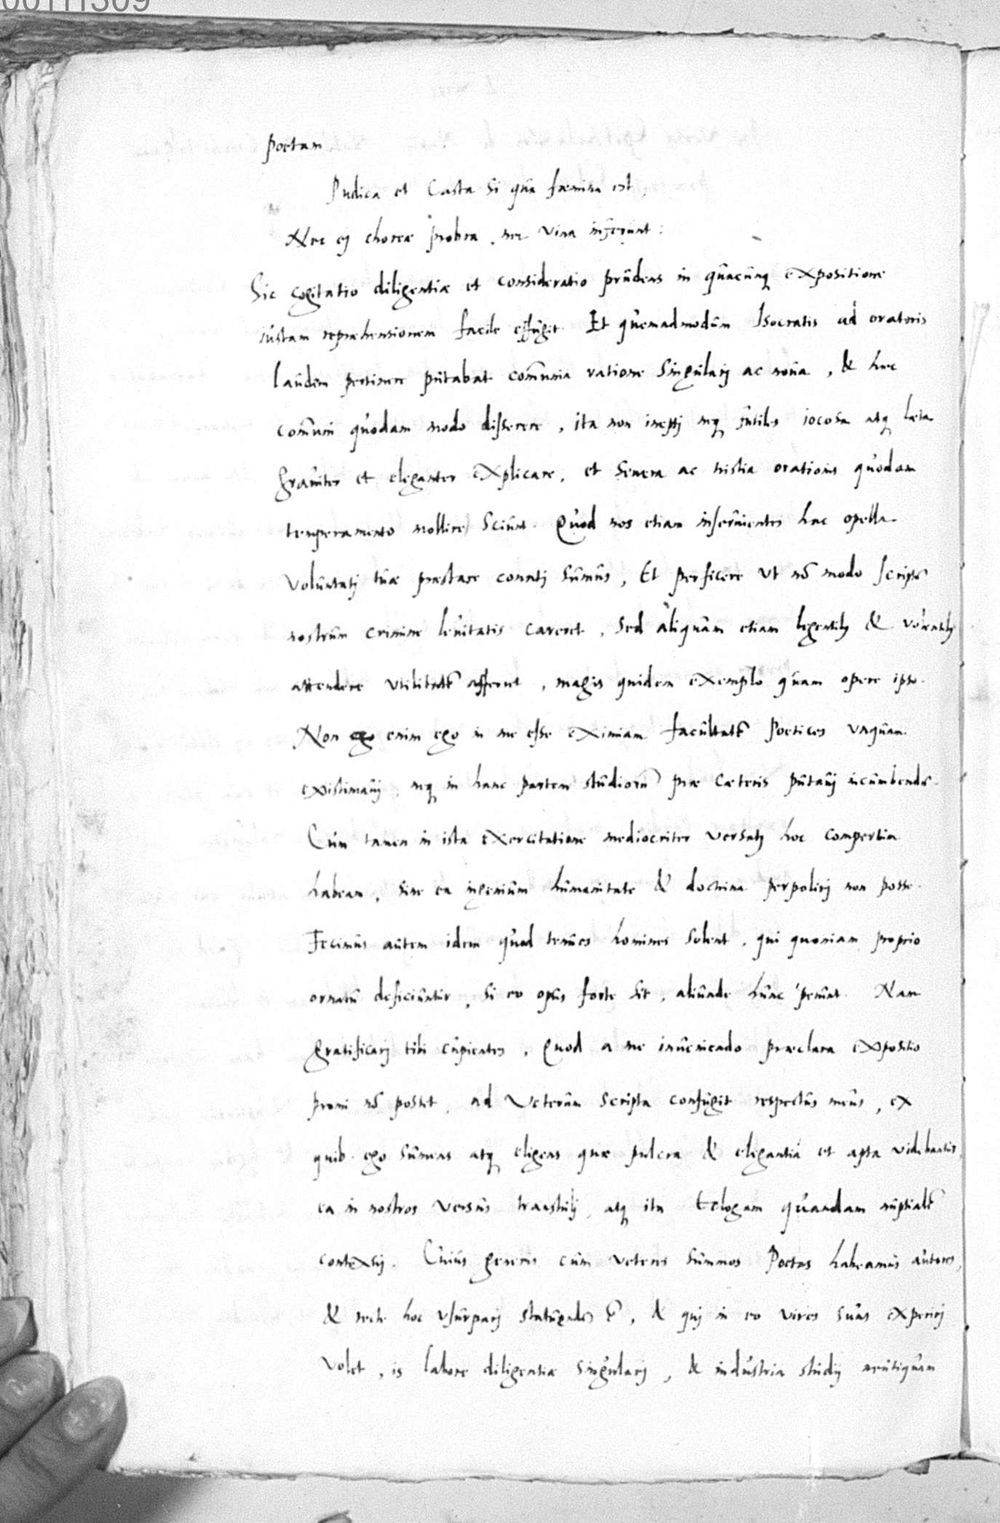 00111309
poetam
Pudica et Casta si qua fæmina est,
Nec ej choreæ probra, nec vina inferunt:
Sic cogitatio diligentiæ et consideratio prudens in quacunq expositione
iustam reprehensionem facile effugit Et quemadmodum Isocratis ad oratoris
laudem pertinere putabat communia ratione singularj ac noua, & hæc
communi quodam modo disserere, ita non ineptj neq futiles iocosa atq læta
grauiter et eleganter explicare, et seuera ac tristia orationis quodam
temperamento mollire sciunt. Quod nos etiam inseruientes hac opella
voluntatj tuæ præstare conatj sumus, Et perficere ut nō modo scriptū
nostrum crimine leuitatis careret, sed aliquam etiam legentib &
attendere utilitatē afferret, magis quidem exemplo quam opere ipso.
Non enim ego in me esse eximiam facultatē Poetices unquam
existimauj, neq in hanc partem studiorū præ cæteris putauj incumbendū.
Cum tamen in ista exercitatione mediocriter versatus hoc compertum
habeam, sine ea ingenium humanitate & doctrina perpolirj non posse.
Fecimus autem idem quod tenues homines solent, qui quoniam proprio
ornatu deficiuntur, si eo opus forte sit, aliunde hunc petunt. Nam
gratificarj tibi cupientes, Quod a me inueniendo præclara expositio
promi nō posset, ad Veterum scripta confugit respectus meus, ex
quib. ego sumens atq eligens quæ pulcra & elegantia et apta videbantur,
ea in nostros versus transtulj, atq ita Eclogam quandam nuptialē
contexuj. Cuius generis cum veteres summos Poetas habeamus autores,
& recte hoc usurparj ē, & quj in eo vires suas experirj
volet, is labore diligentiæ singularj, & industria studij neutiquam